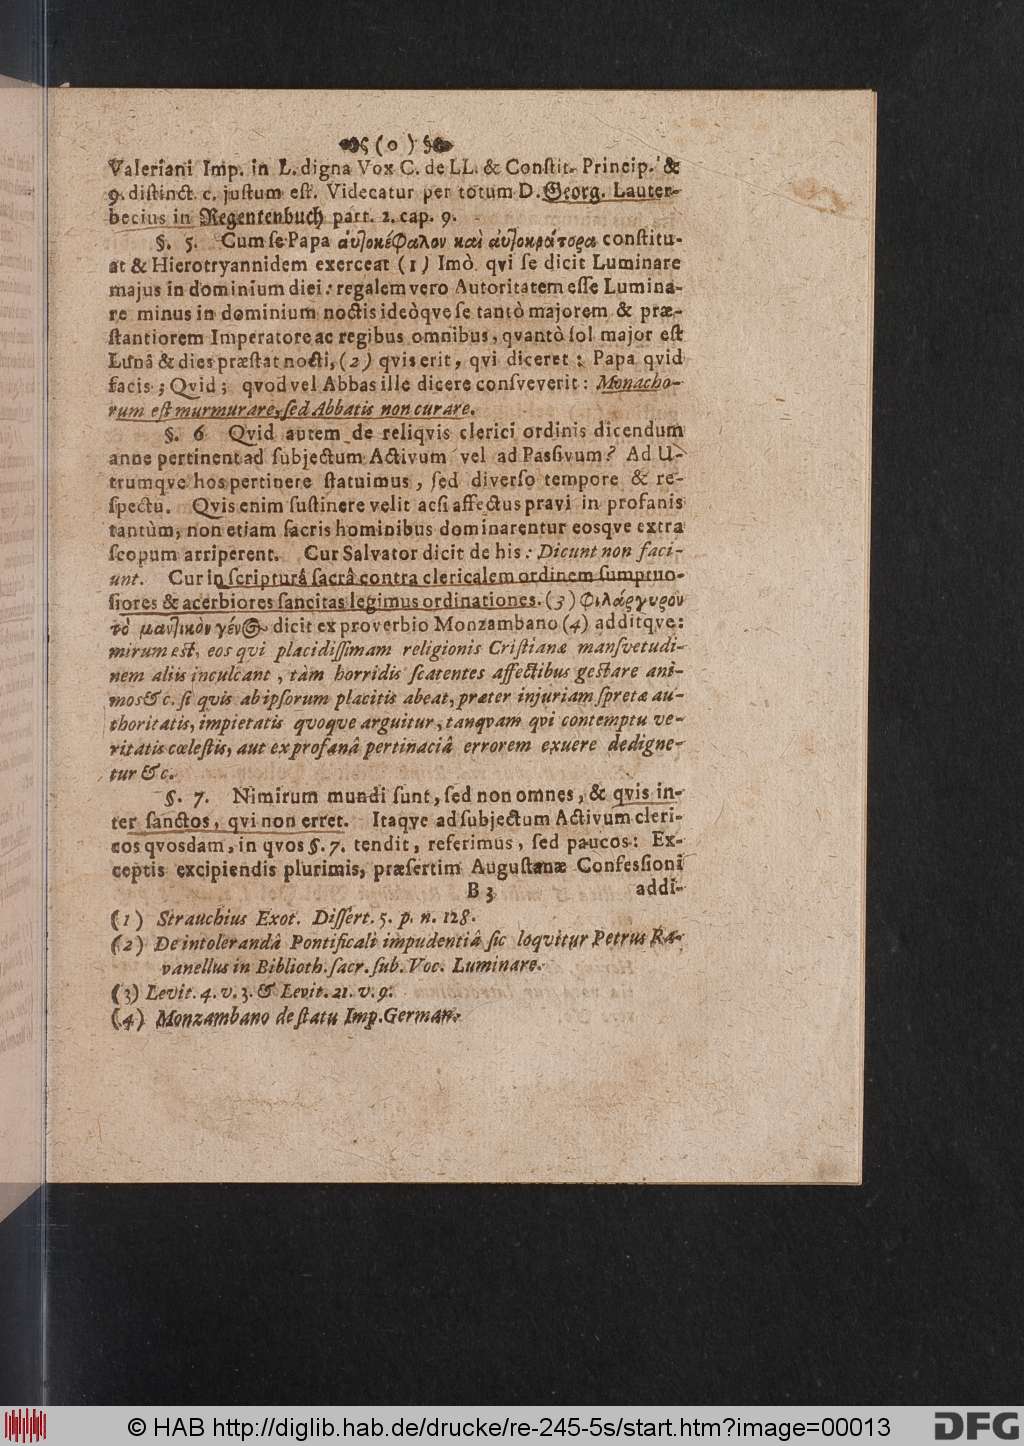 ς ( o ) §
Valeriani Imp. in L. digna Vox C. de LL. & Conſtit. Princip. &
9. diſtinct. c. juſtum eſt. Videcatur per totum D. Georg. Lauter-
becius in Regentenbuch part. 2. cap. 9.
§. 5. Cum ſe Papa ἀυ]οκέφαλον καὶ ἀυ]οκράτορα conſtitu-
at & Hierotryannidem exerceat (1) Imò qvi ſe dicit Luminare
majus in dominium diei: regalem vero Autoritatem eſſe Lumina-
re minus in dominium noctis ideòqve ſe tantò majorem & præ-
ſtantiorem Imperatore ac regibus omnibus, qvantò ſol major eſt
Lunâ & dies præſtat nocti, (2) qvis erit, qvi diceret: Papa qvid
facis; Qvid; qvod vel Abbas ille dicere conſveverit: Monacho-
rum eſt murmurare, ſed Abbatis non curare.
§. 6 Qvid autem de reliqvis clerici ordinis dicendum
anne pertinent ad ſubjectum Activum vel ad Passivum? Ad U-
trumqve hos pertinere ſtatuimus, ſed diverſo tempore & re-
ſpectu. Qvis enim ſuſtinere velit acſi affectus pravi in profanis
tantùm, non etiam ſacris hominibus dominarentur eosqve extra
ſcopum arriperent. Cur Salvator dicit de his: Dicunt non faci-
unt. Cur in ſcripturâ ſacrâ contra clericalem ordinem ſumptuo-
ſiores & acerbiores ſancitas legimus ordinationes. (3) Φιλάργυρον
τὸ μαν]ικὸν γένος dicit ex proverbio Monzambano (4) additqve:
mirum eſt, eos qvi placidiſſimam religionis Criſtianæ manſvetudi-
nem aliis inculcant, tàm horridis ſcatentes affectibus geſtare ani-
mos &c. ſi qvis ab ipſorum placitis abeat, præter injuriam ſpretæ au-
thoritatis, impietatis qvoqve arguitur, tanqvam qvi contemptu ve-
ritatis cœleſtis, aut ex profanâ pertinaciâ errorem exuere dedigne-
tur &c.
§. 7. Nimirum mundi ſunt, ſed non omnes, & qvis in-
ter ſanctos, qvi non erret. Itaqve ad ſubjectum Activum cleri-
cos qvosdam, in qvos §. 7. tendit, referimus, ſed paucos: Ex-
ceptis excipiendis plurimis, præſertim Auguſtanæ Confeſſioni
B 3 addi-
(1) Strauchius Exot. Diſſert. 5. p. n. 128.
(2) De intolerandâ Pontificali impudentiâ ſic loqvitur Petrus Ra-
vanellus in Biblioth. ſacr. ſub. Voc. Luminare.
(3) Levit. 4. v. 3. & Levit. 21. v. 9.
(4) Monzambano de ſtatu Imp. German.
© HAB http://diglib.hab.de/drucke/re-245-5s/start.htm?image=00013
DFG